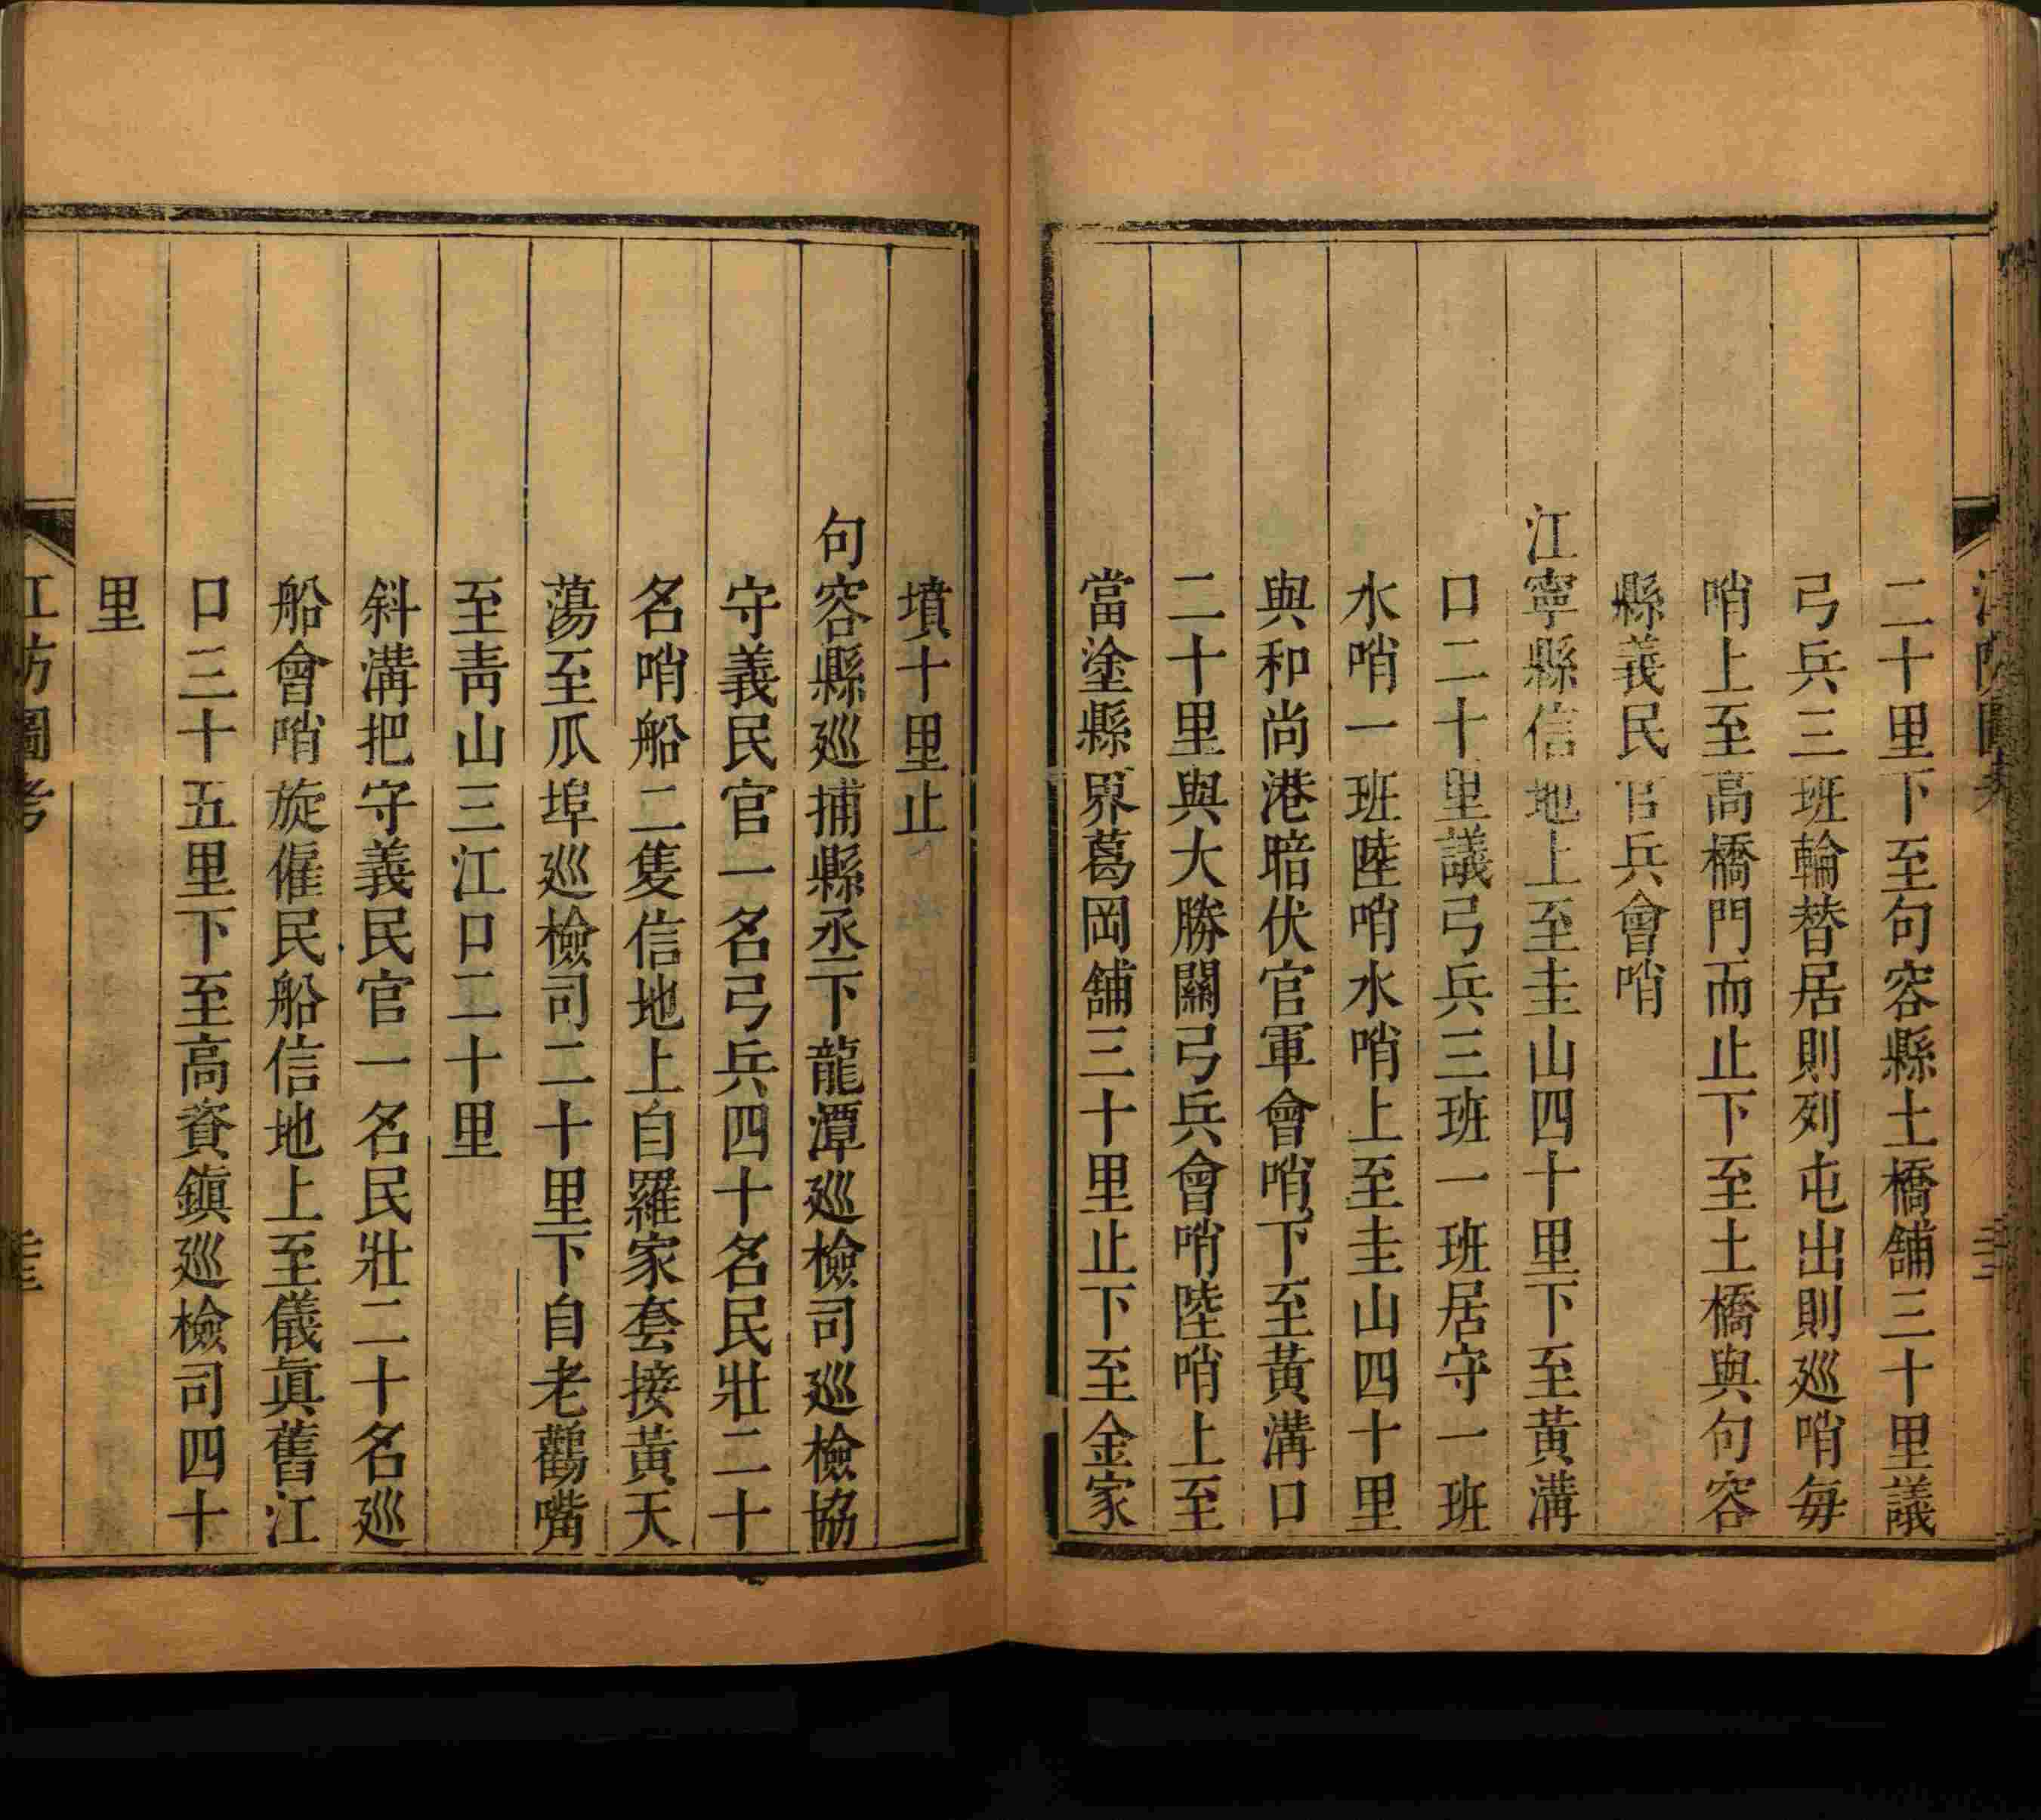 二十里下至句容縣土橋舖三十里議
弓兵三班輪替居則列屯出則巡哨每
哨上至高橋門而止下至土橋與句容
縣義民官兵會哨
江寧縣信地上至圭山四十里下至黃溝
口二十里議弓兵三班一班居守一班
水哨一班陸哨水哨上至圭山四十里
與和尚港暗伏官軍會哨下至黃溝口
二十里與大勝關弓兵會哨陸哨上至
當塗縣界葛岡舖三十里止下至金家
墳十里止
句容縣巡捕縣丞下龍潭巡檢司巡檢協
守義民官一名弓兵四十名民壯二十
名哨船二隻信地上自羅家套接黃天
蕩至瓜埠巡檢司二十里下自老鸛嘴
至靑山三江口二十里
斜溝把守義民官一名民壯二十名巡
船會哨旋僱民船信地上至儀眞舊江
口三十五里下至高資鎭巡檢司四十
里
江防圖考